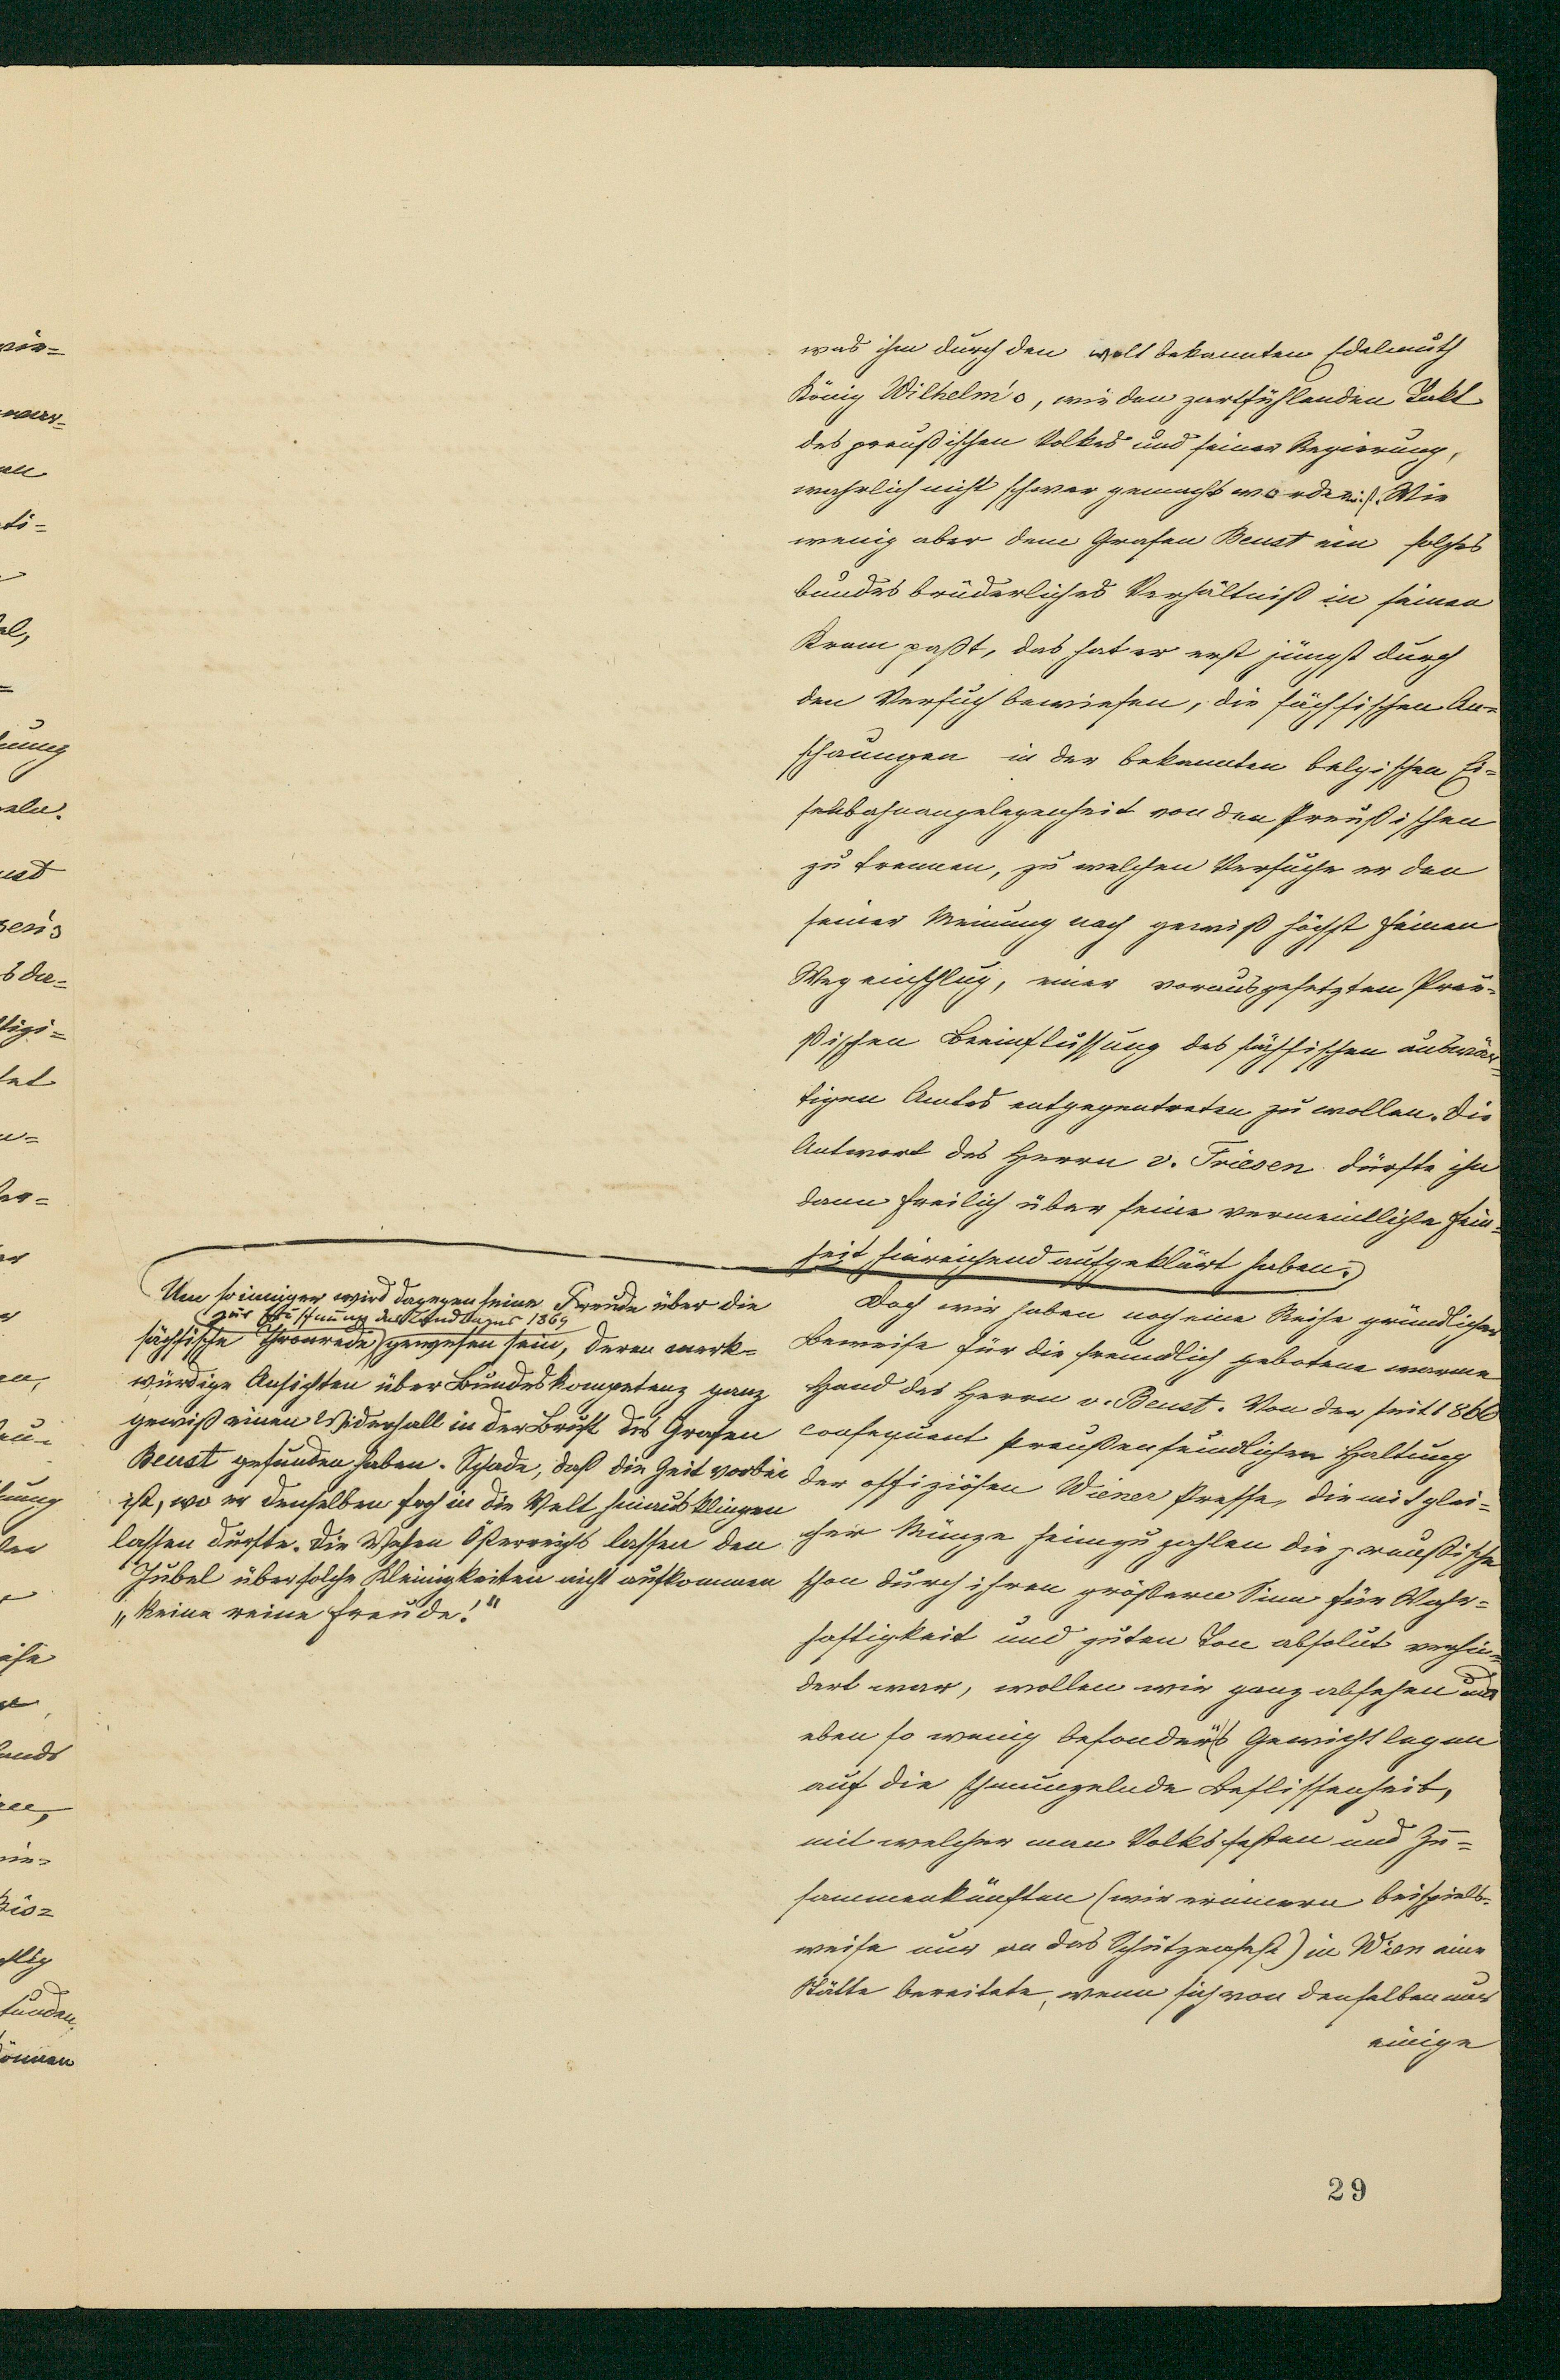 was ihm durch den weltbekannten Edelmuth
König Wilhelm's, wie den zartfühlenden Takt
des preußischen Volkes und seiner Regierung,
wahrlich nicht schwer gemacht worden ist. Wie
wenig aber dem Grafen Beust ein solches
bundesbrüderliches Verhältniß in seinen
Kram paßt, das hat er erst jüngst durch
den Versuch bewiesen, die sächsischen An-
schauungen in der bekannten belgischen Ei-
senbahnangelegenheit von den Preußischen
zu trennen, zu welchen Versuche er den
seiner Meinung nach gewiß höchst feinen
Weg einschlug, einer vorausgesetzten Preu-
ßischen Beeinflussung des sächsischen auswär-
tigen Amtes entgegentreten zu wollen. Die
Antwort des Herrn v. Friesen dürfte ihn
dann freilich über seine vermeintliche Fein-
heit hinreichend aufgeklärt haben.
Um so inniger wird dagegen seine Freude über die
zur Eröffnung des Landtages 1869
sächsische Thronrede gewesen sein, deren merk-
würdige Ansichten über Bundeskompetenz ganz
gewiß einen Widerhall in der Brust des Grafen
Beust gefunden haben. Schade, daß die Zeit vorbei
ist, wo er denselben hoch in die Welt hinausklingen
lassen durfte. Die Wehen Österreichs lassen den
Jubel über solche Kleinigkeiten nicht aufkommen
„keine reine Freude!"
Doch wir haben noch eine Reihe gründlicher
Beweise für die freundlich gebotene warme
Hand des Herrn v. Beust. Von der seit 1866
consequent Preußenfeindlichen Haltung
der offiziösen Wiener Presse, die mit glei-
cher Münze heimzuzahlen die preußische
schon durch ihren größern Sinn für Wahr-
haftigkeit und guten Ton absolut verhin-
dert war, wollen wir ganz absehen und
eben so wenig besonders Gewicht legen
auf die schmunzelnde Beflissenheit,
mit welcher man Volksfesten und Zu-
sammenkünften (wir erinnern beispiels-
weise nur an das Schützenfest) in Wien eine
Stätte bereitete, wenn sich von denselben nur
einige
29